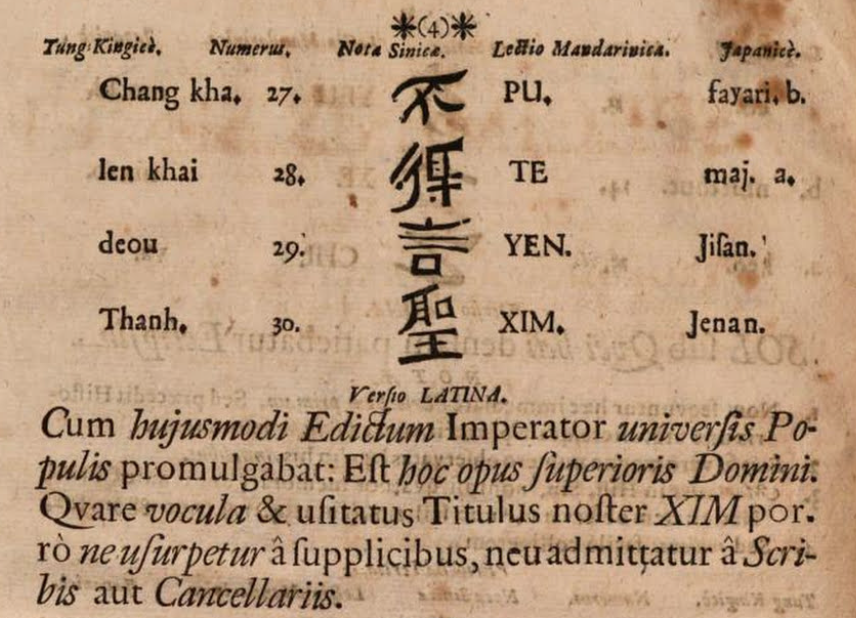 ❋(4)❋
Tung-Kingicè. Numerus. Nota Sinicæ. Lectio Mandarinica. Japanicè.
Chang kha. 27. 不 PU. fayari. b.
len khai 28. 得 TE maj. a.
deou 29. 言 YEN. Jiſan.
Thanh. 30. 聖 XIM. Jenan.
Verſio LATINA.
Cum hujusmodi Edictum Imperator univerſis Po-
pulis promulgabat: Eſt hoc opus ſuperioris Domini.
Qvare vocula & uſitatus Titulus noſter XIM por.
rò ne uſurpetur â ſupplicibus, neu admittatur â Scri-
bis aut Cancellariis.